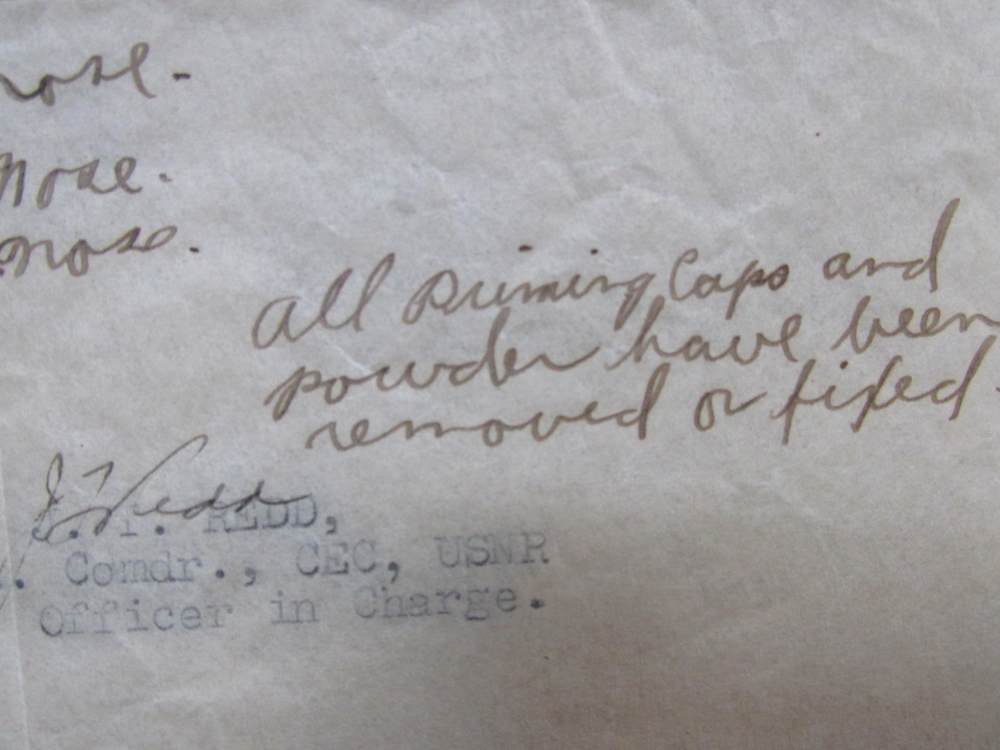 nose.
Nose.
nose.
All Priming Caps and
powder have been
removed or fixed.
J. T. Redd
J. T. REDD,
. Comdr., CEC, USNR
Officer in Charge.